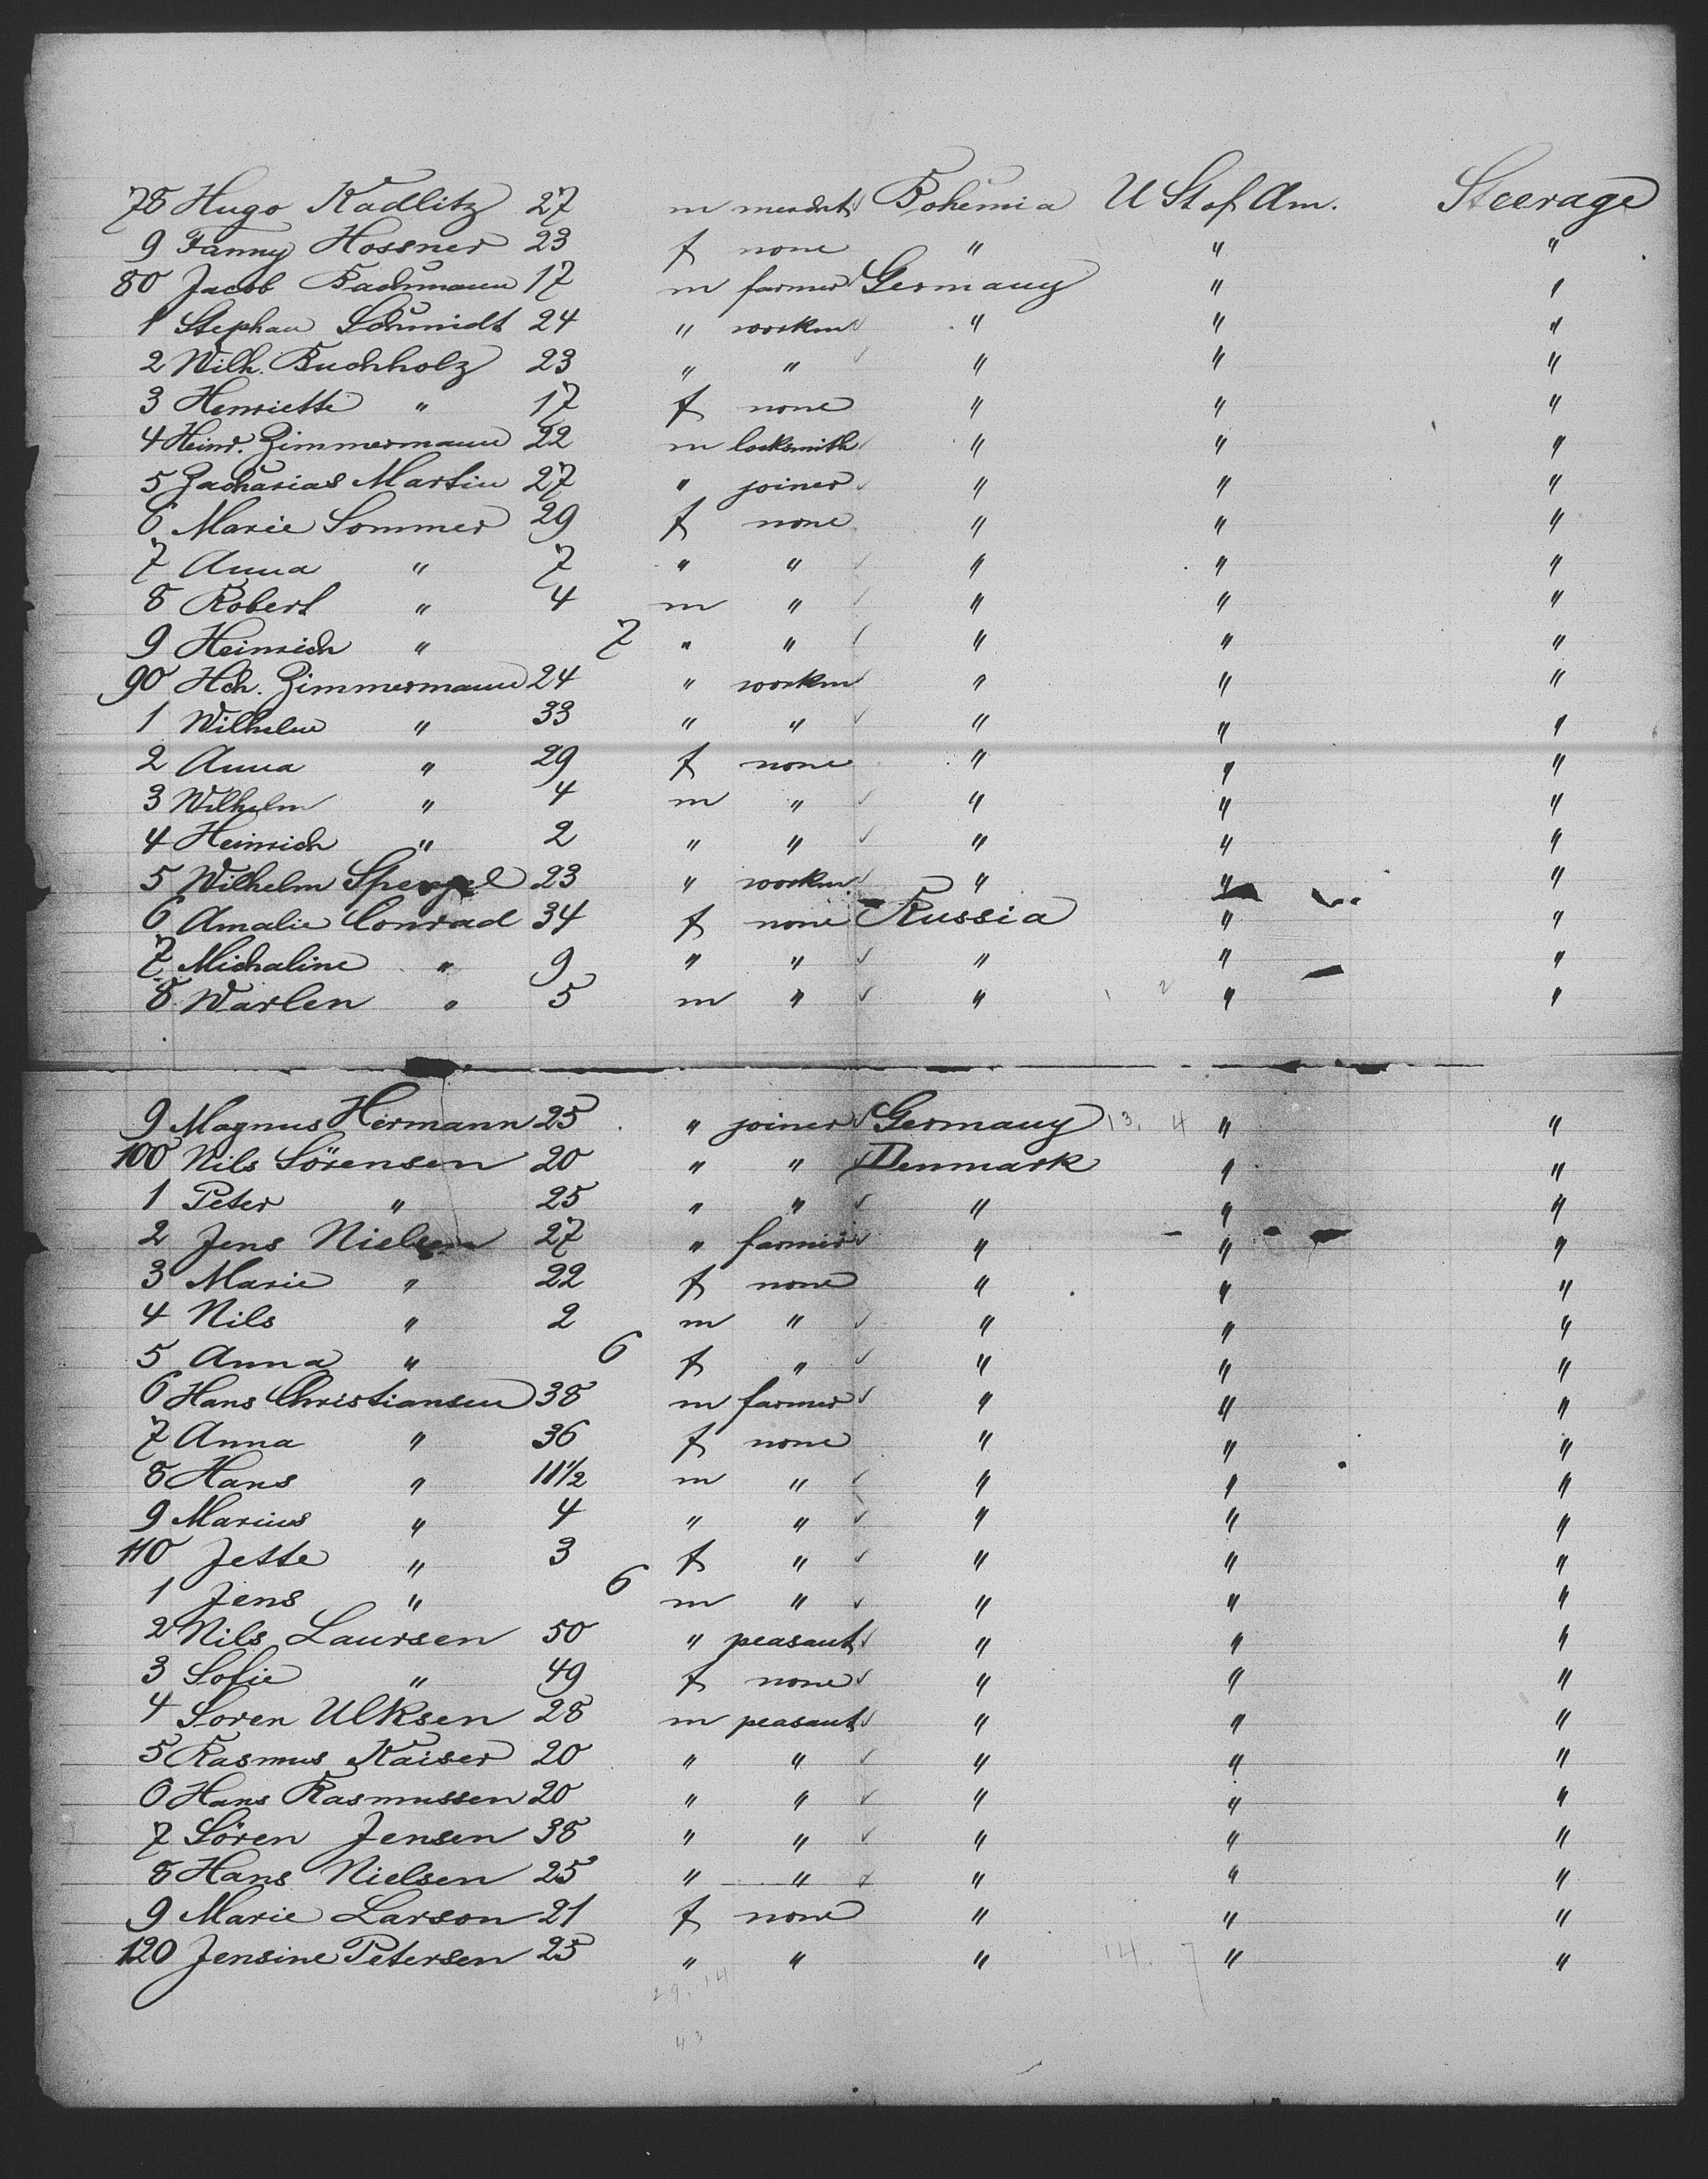 78 Hugo Kadlitz 27 m merchts Bohemia U St of Am. Steerage
9 Fanny Hossner 23 f none " " "
80 Jacob Bachmann 17 m farmer Germany " "
1 Stephan Schmidt 24 " workm " " "
2 Wilh. Buchholz 23 " " " " "
3 Henriette " 17 f none " " "
4 Heinr. Zimmermann 22 m locksmith " " "
5 Zacharias Martin 27 " joiner " " "
6 Marie Sommer 29 f none " " "
7 Anna " 7 " " " " "
8 Robert " 4 m " " " "
9 Heinrich " 7 " " " " "
90 Hch. Zimmermann 24 " workm " " "
1 Wilhelm " 33 " " " " "
2 Anna " 29 f none " " "
3 Wilhelm " 4 m " " " "
4 Heinrich " 2 " " " " "
5 Wilhelm Spengel 23 " workm " " "
6 Amalie Conrad 34 f none Russia " "
7 Michaline " 9 " " " " "
8 Warlen " 5 m " " 1 2 " "
9 Magnus Hermann 25 " joiner Germany 13. 4 " "
100 Nils Sörensen 20 " " Denmark " "
1 Peter " 25 " " " " "
2 Jens Nielsen 27 " farmer " " "
3 Marie " 22 f none " " "
4 Nils " 2 m " " " "
5 Anna " 6 f " " " "
6 Hans Christiansen 38 m farmer " " "
7 Anna " 36 f none " " "
8 Hans " 11½ m " " " "
9 Marius " 4 " " " " "
110 Jette " 3 f " " " "
1 Jens " 6 m " " " "
2 Nils Laursen 50 " peasant " " "
3 Sofie " 49 f none " " "
4 Soren Ulksen 28 m peasant " " "
5 Rasmus Kaiser 20 " " " " "
6 Hans Rasmussen 20 " " " " "
7 Sören Jensen 38 " " " " "
8 Hans Nielsen 25 " " " " "
9 Marie Larson 21 f none " " "
120 Jensine Petersen 25 " " " 14. 7 " "
29. 14
43